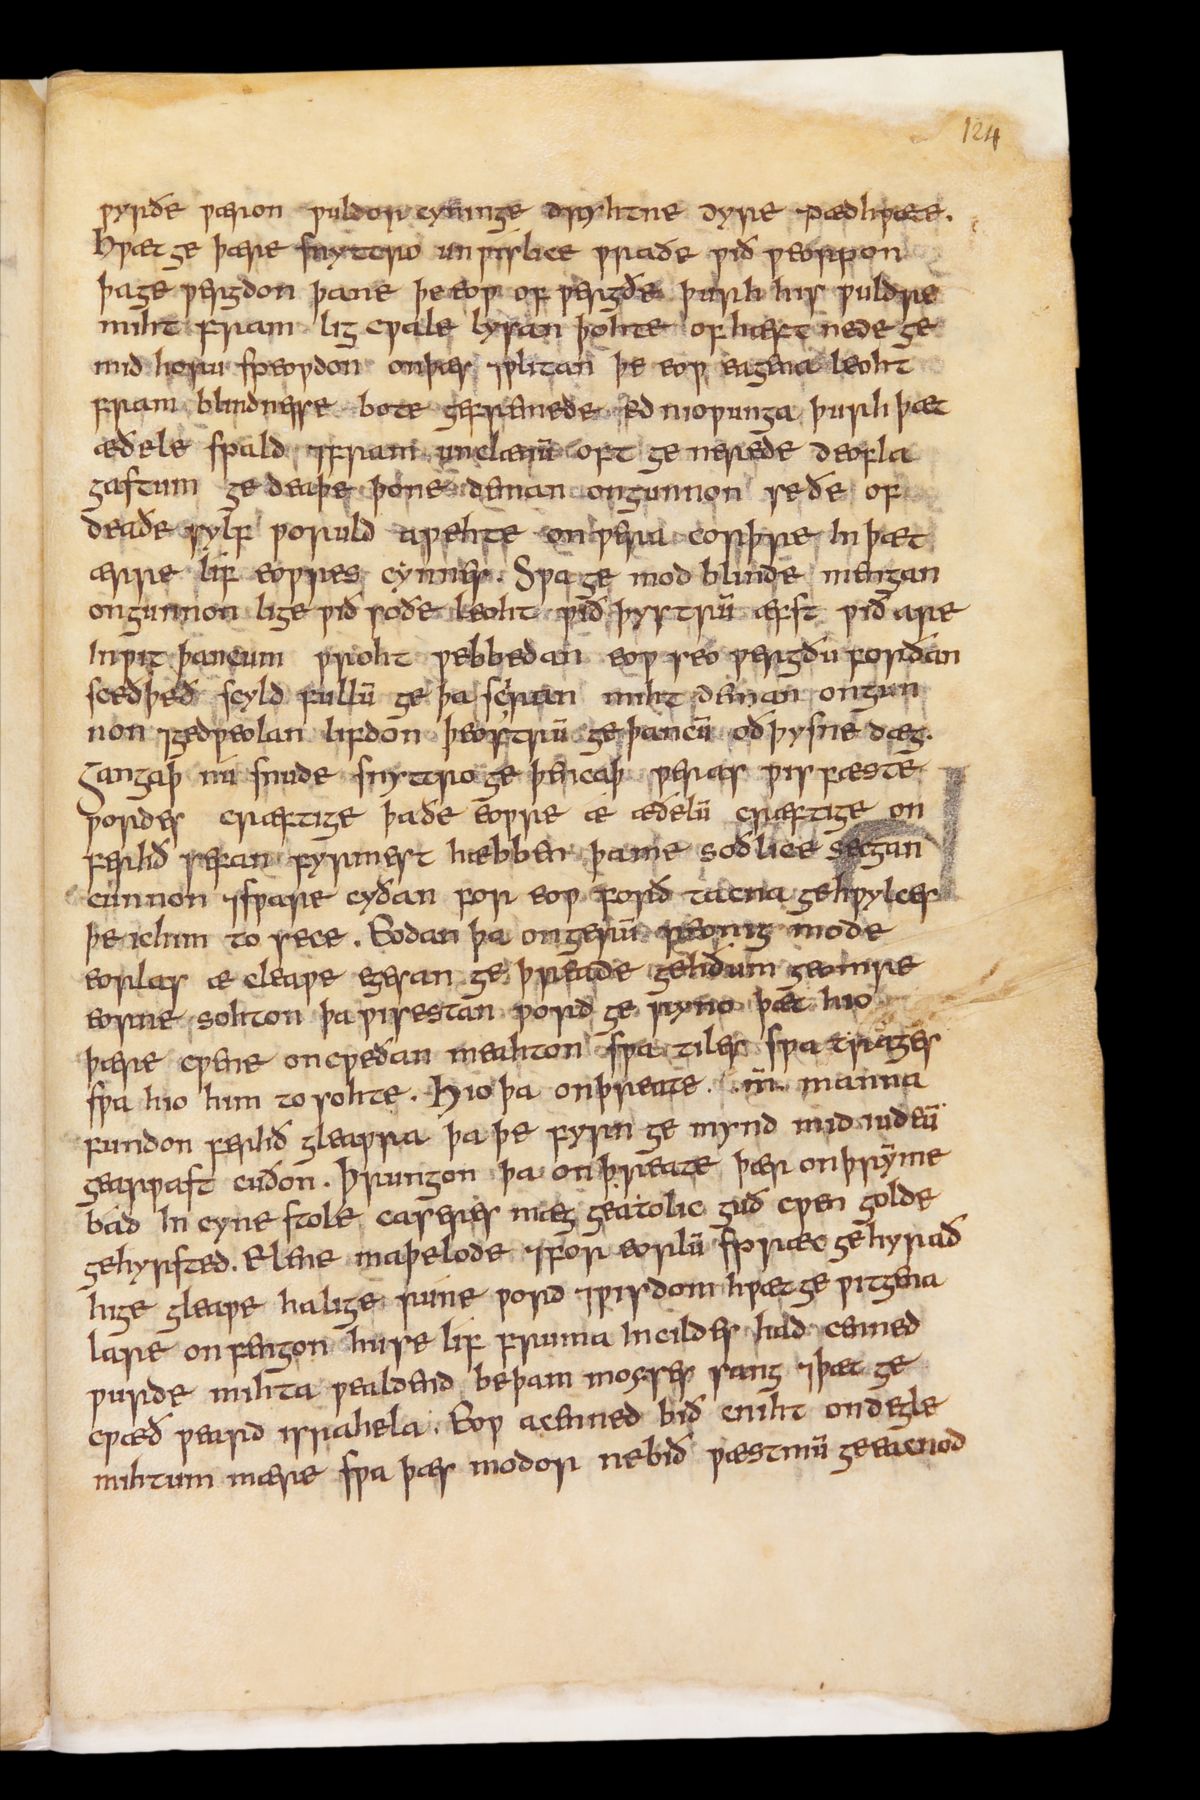 124
ƿyrðe ƿæron ƿuldorcyninge dryhtne dyre ⁊dædhƿæte.
Hƿæt ge þære snyttro unƿislice ƿraðe ƿiðƿeorpon
þage ƿergdon þane þe eoƿ of ƿergðe þurh his ƿuldres
miht fram ligcƿale lysan þohte of hæft nede ge
mid horu speoƿdon onþæs ⁊ƿlitan þe eoƿ eagena leoht
fram blindnesse bote gefremede ednioƿunga þurh þæt
æðele spald ⁊fram unclænū oft ge nerede deofla
gastum ge deaþe þone deman ongunnon se ðe of
deaðe sylf ƿoruld aƿehte on ƿera corþre in þæt
ærre lif eoƿres cynnes. Sƿa ge mod blinde mengan
ongunnon lige ƿið soðe leoht ƿið þystrū æfst ƿið are
inƿit þancum ƿroht ƿebbedan eoƿ seo ƿergðu forðan
sceðþeð scyld fullū ge þa sciran miht deman ongun
non ⁊gedƿeolan lifdon þeostrū geþancū oð þysne dæg.
Gangaþ nu snude snyttro geþencaþ ƿeras ƿisfæste
ƿordes cræftige þa ðe eoƿre æ æðelū cræftige on
ferhð sefan fyrmest hæbben þa me soðlice secgan
cunnon ⁊sƿare cyðan for eoƿ forð tacna gehƿylces
þe ic him to sece. Eodan þa on gerū reonig mode
eorlas æ cleaƿe egesan geþreade gehðum geomre
eorne sohton þa ƿisestan ƿord ge ryno þæt hio
þære cƿene oncƿeðan meahton sƿa tiles sƿa trages
sƿa hio him to sohte. Hio þa on þreate .m̄. manna
fundon ferhð gleaƿra þa þe fyrn ge mynd mid iudeū
gearƿast cuðon. Þrungon þa on þreate þær on þrymme
bad in cyne stole caseres mæg geatolic guð cƿen golde
gehyrsted. Elene maþelode ⁊for eorlū spræc gehyrað
hige gleaƿe halige rune ƿord ⁊ƿisdom hƿæt ge ƿitgena
lare onfengon hu se lif fruma in cildes had cenned
ƿurde mihta ƿealdend be þam moyses sang ⁊þæt ge
cƿæð ƿeard israhela. Eoƿ acenned bið cniht on degle
mihtum mære sƿa þæs modor ne bið ƿæstmū geeacnod